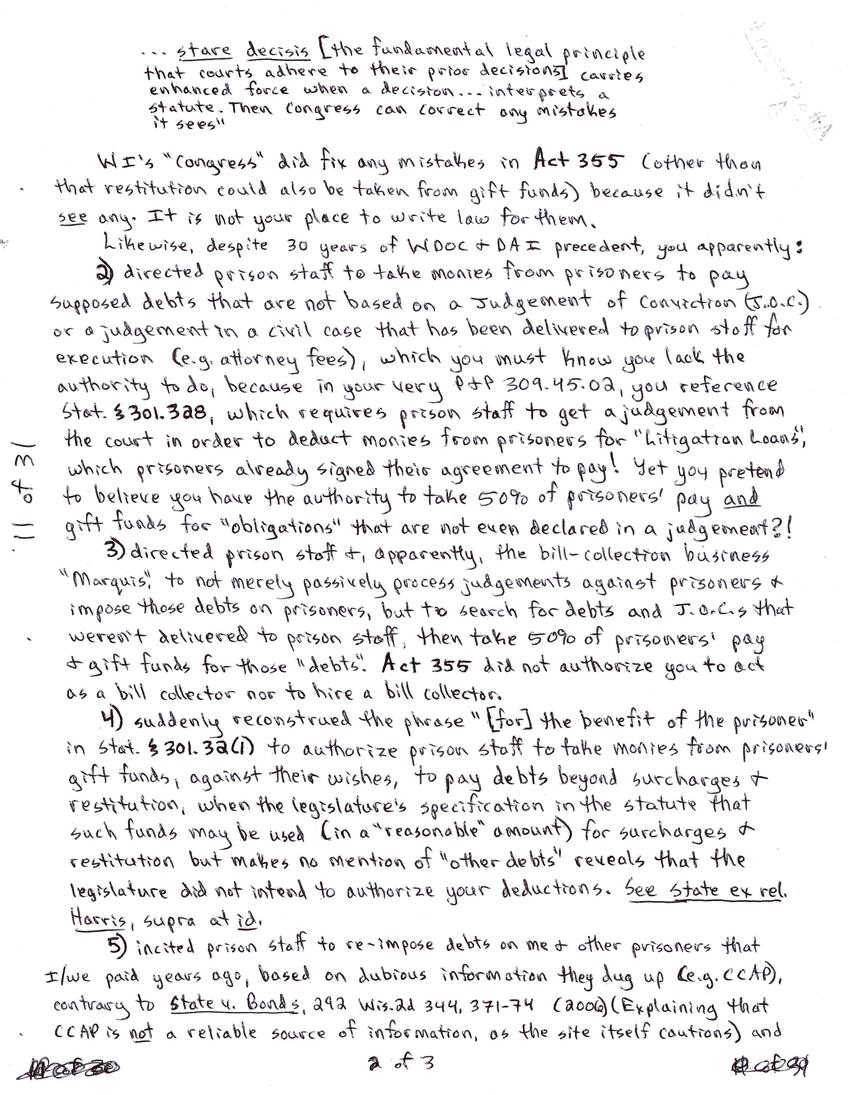 ... stare decisis [the fundamental legal principle
that courts adhere to their prior decisions] carries
enhanced force when a decision... interprets a
statute. Then Congress can correct any mistakes
it sees"
WI's "Congress" did fix any mistakes in Act 355 (other than
that restitution could also be taken from gift funds) because it didn't
see any. It is not your place to write law for them.
Likewise, despite 30 years of WDOC & DAI precedent, you apparently:
2) directed prison staff to take monies from prisoners to pay
supposed debts that are not based on a Judgement of Conviction (J.O.C.)
or a judgement in a civil case that has been delivered to prison staff for
execution (e.g. attorney fees), which you must know you lack the
authority to do, because in your very P&P 309.45.02, you reference
Stat. §301.328, which requires prison staff to get a judgement from
the court in order to deduct monies from prisoners for "Litigation Loans",
which prisoners already signed their agreement to pay! Yet you pretend
to believe you have the authority to take 50% of prisoners' pay and
gift funds for "obligations" that are not even declared in a judgement?!
3) directed prison staff &, apparently, the bill-collection business
"Marquis", to not merely passively process judgements against prisoners &
impose those debts on prisoners, but to search for debts and J.O.C.s that
weren't delivered to prison staff, then take 50% of prisoners' pay
& gift funds for those "debts". Act 355 did not authorize you to act
as a bill collector nor to hire a bill collector.
4) suddenly reconstrued the phrase "[for] the benefit of the prisoner"
in Stat. §301.32(1) to authorize prison staff to take monies from prisoners'
gift funds, against their wishes, to pay debts beyond surcharges &
restitution, when the legislature's specification in the statute that
such funds may be used (in a "reasonable" amount) for surcharges &
restitution but makes no mention of "other debts" reveals that the
legislature did not intend to authorize your deductions. See State ex rel.
Harris, supra at id.
5) incited prison staff to re-impose debts on me & other prisoners that
I/we paid years ago, based on dubious information they dug up (e.g. CCAP),
contrary to State v. Bonds, 292 Wis.2d 344, 371-74 (2006)(Explaining that
CCAP is not a reliable source of information, as the site itself cautions) and
2 of 3